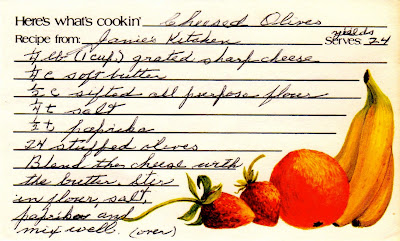 Here's what's cookin' Cheesed Olives
Recipe from: Janie's Kitchen yields Serves: 24
¼ lb (1 cup) grated sharp cheese
¼ c soft butter
½ c sifted all purpose flour
¼ t salt
½ t paprika
24 stuffed olives
Blend the cheese with
the butter. Stir
in flour, salt,
paprika and
mix well. (over)